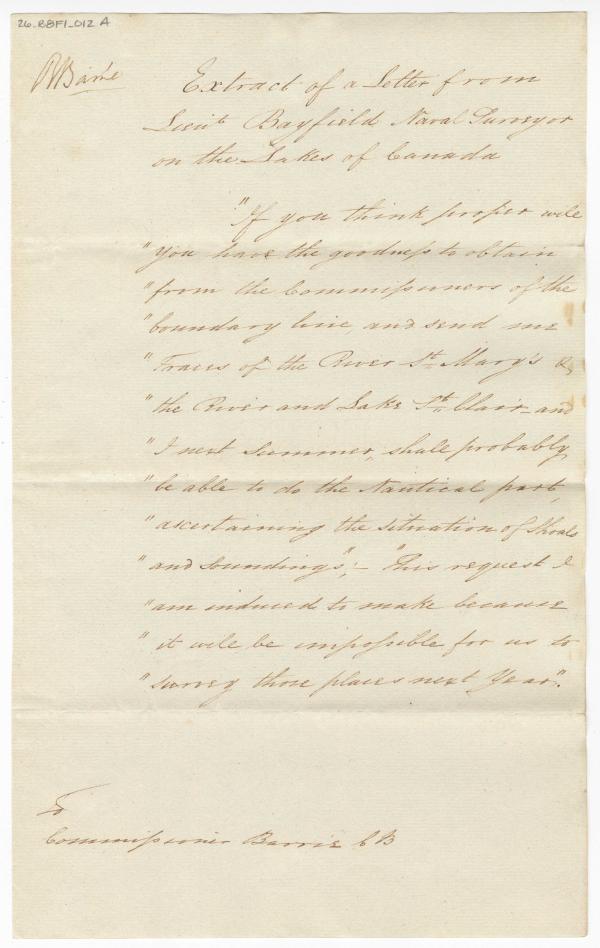 26-BBF1-012 A
Extract of a Letter from
Lieut Bayfield Naval Surveyor
on the Lakes of Canada
"If you think proper will
"you have the goodness to obtain
"from the Commissioners of the
"boundary line, and send me
"Traces of the River St. Mary's &
"the River and Lake St. Clair - and
"I next Summer, shall probably
"be able to do the Nautical part,
"ascertaining the situation of Shoals
"and Soundings"; - "This request I
"am induced to make because
"it will be impossible for us to
"survey those places next Year".
To
Commissioner Barrie CB